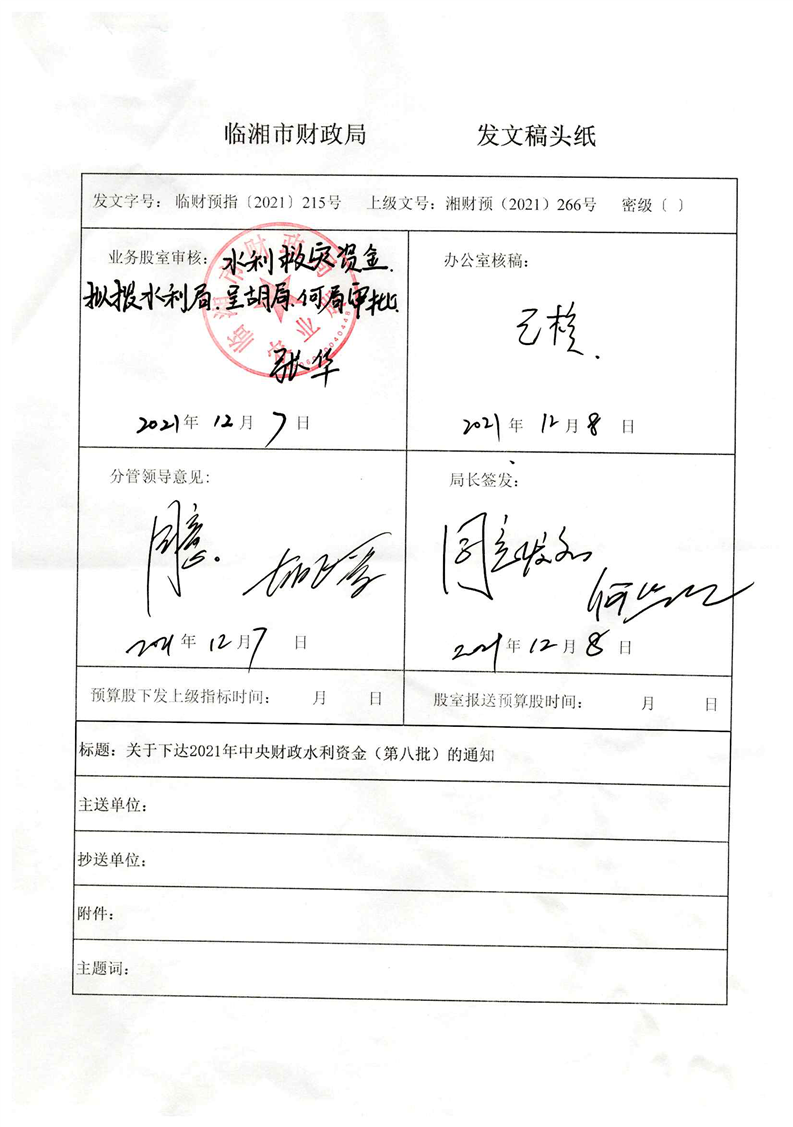 临湘市财政局 发文稿头纸
发文字号：临财预指〔2021〕215号 上级文号：湘财预（2021）266号 密级〔 〕
业务股室审核：水利救灾资金.
拟拨水利局.呈胡局.何局审批.
张华
2021年 12月 7日
办公室核稿：
已核.
2021年 12月 8日
分管领导意见：
同意.
2021年 12月 7日
局长签发：
同意发文
2021年 12月 8日
预算股下发上级指标时间： 月 日
股室报送预算股时间： 月 日
标题：关于下达2021年中央财政水利资金（第八批）的通知
主送单位：
抄送单位：
附件：
主题词：